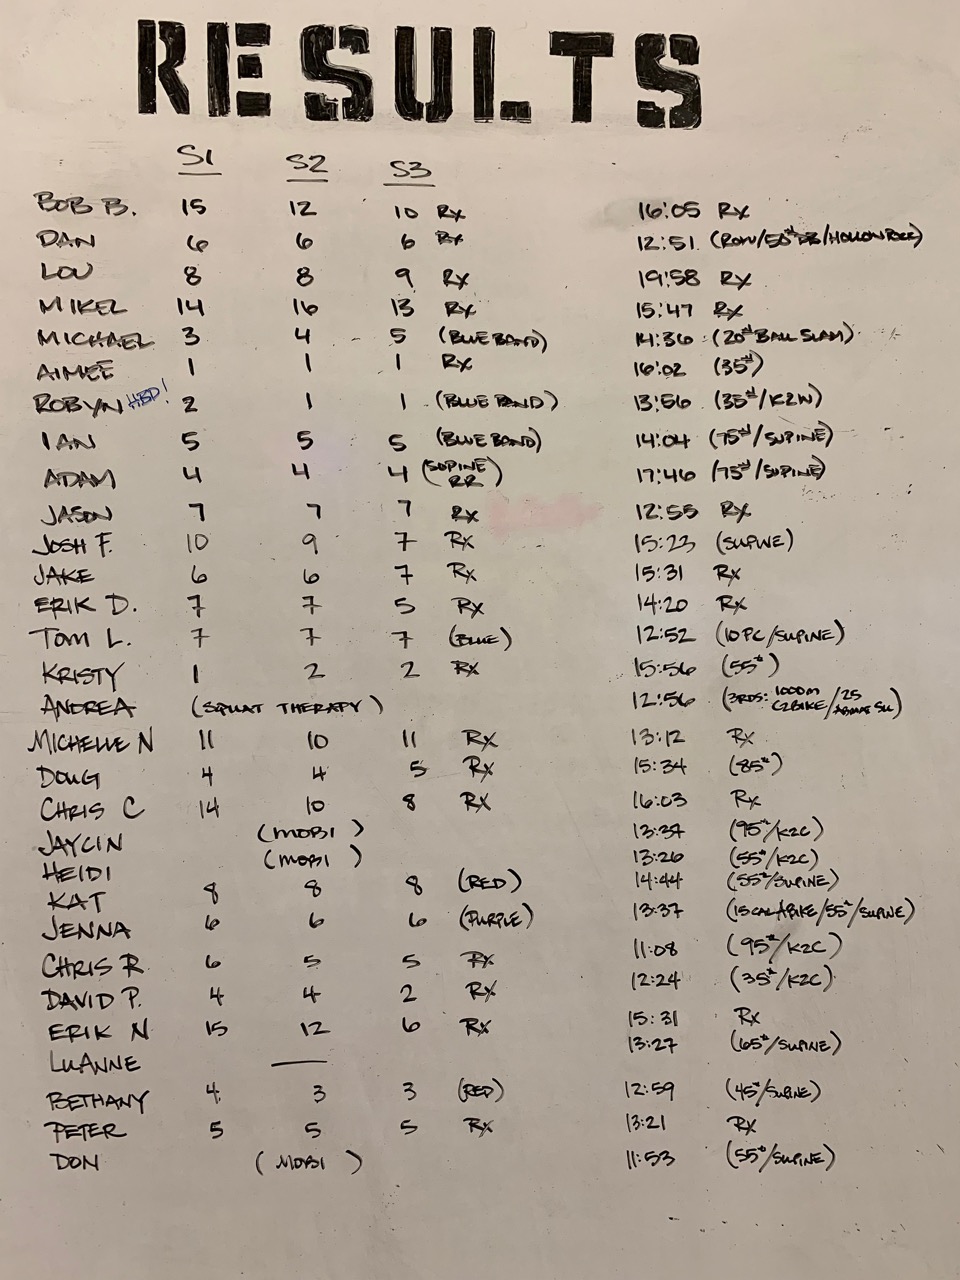 RESULTS
S1 S2 S3
BOB B. 15 12 10 Rx 16:05 Rx
DAN 6 6 6 Rx 12:51 (ROW/50# DB/HOLLOW ROCK)
LOU 8 8 9 Rx 19:58 Rx
MIKEL 14 16 13 Rx 15:47 Rx
MICHAEL 3 4 5 (BLUE BAND) 14:36 (20# BALL SLAM)
AIMEE 1 1 1 Rx 16:02 (35#)
ROBYN HBD! 2 1 1 (BLUE BAND) 13:56 (35#/K2W)
IAN 5 5 5 (BLUE BAND) 14:04 (75#/SUPINE)
ADAM 4 4 4 (SUPINE RR) 17:46 (75#/SUPINE)
JASON 7 7 7 Rx 12:55 Rx
JOSH F. 10 9 7 Rx 15:23 (SUPINE)
JAKE 6 6 7 Rx 15:31 Rx
ERIK D. 7 7 5 Rx 14:20 Rx
TOM L. 7 7 7 (BLUE) 12:52 (10 PC/SUPINE)
KRISTY 1 2 2 Rx 15:56 (55#)
ANDREA (SQUAT THERAPY) 12:56 (3RDS: 1000M C2BIKE/25 ABMAT SU)
MICHELLE N 11 10 11 Rx 13:12 Rx
DOUG 4 4 5 Rx 15:34 (85#)
CHRIS C 14 10 8 Rx 16:03 Rx
JAYCIN (MOBI) 13:37 (95#/K2C)
HEIDI (MOBI) 13:26 (55#/K2C)
KAT 8 8 8 (RED) 14:44 (55#/SUPINE)
JENNA 6 6 6 (PURPLE) 13:37 (15CAL ABIKE/55#/SUPINE)
CHRIS R 6 5 5 Rx 11:08 (95#/K2C)
DAVID P. 4 4 2 Rx 12:24 (35#/K2C)
ERIK N 15 12 6 Rx 15:31 Rx
LUANNE — 13:27 (65#/SUPINE)
BETHANY 4 3 3 (RED) 12:59 (45#/SUPINE)
PETER 5 5 5 Rx 13:21 Rx
DON (MOBI) 11:53 (55#/SUPINE)